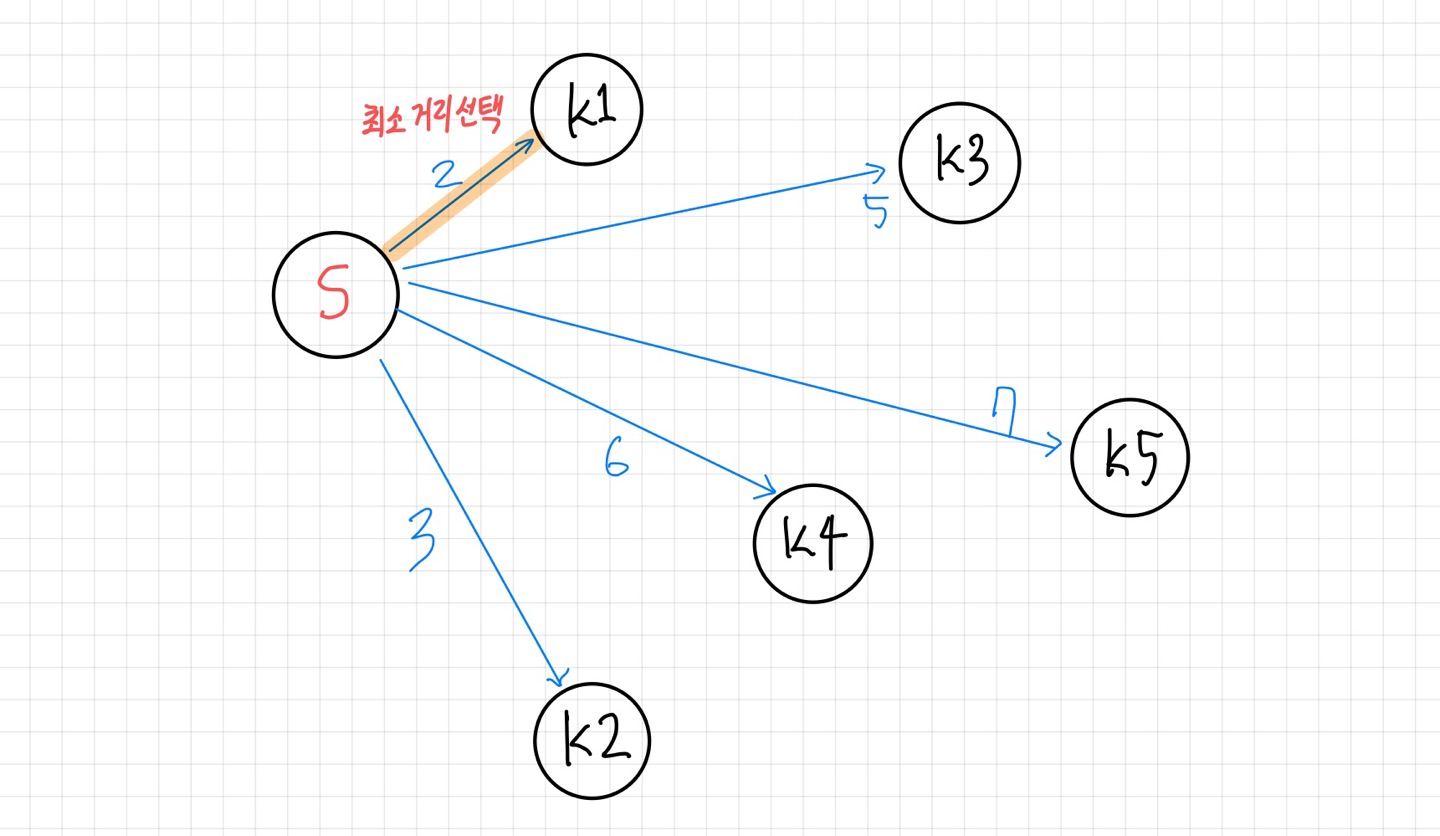 최소 거리 선택
k1
2
k3
5
S
7
k5
6
k4
3
k2